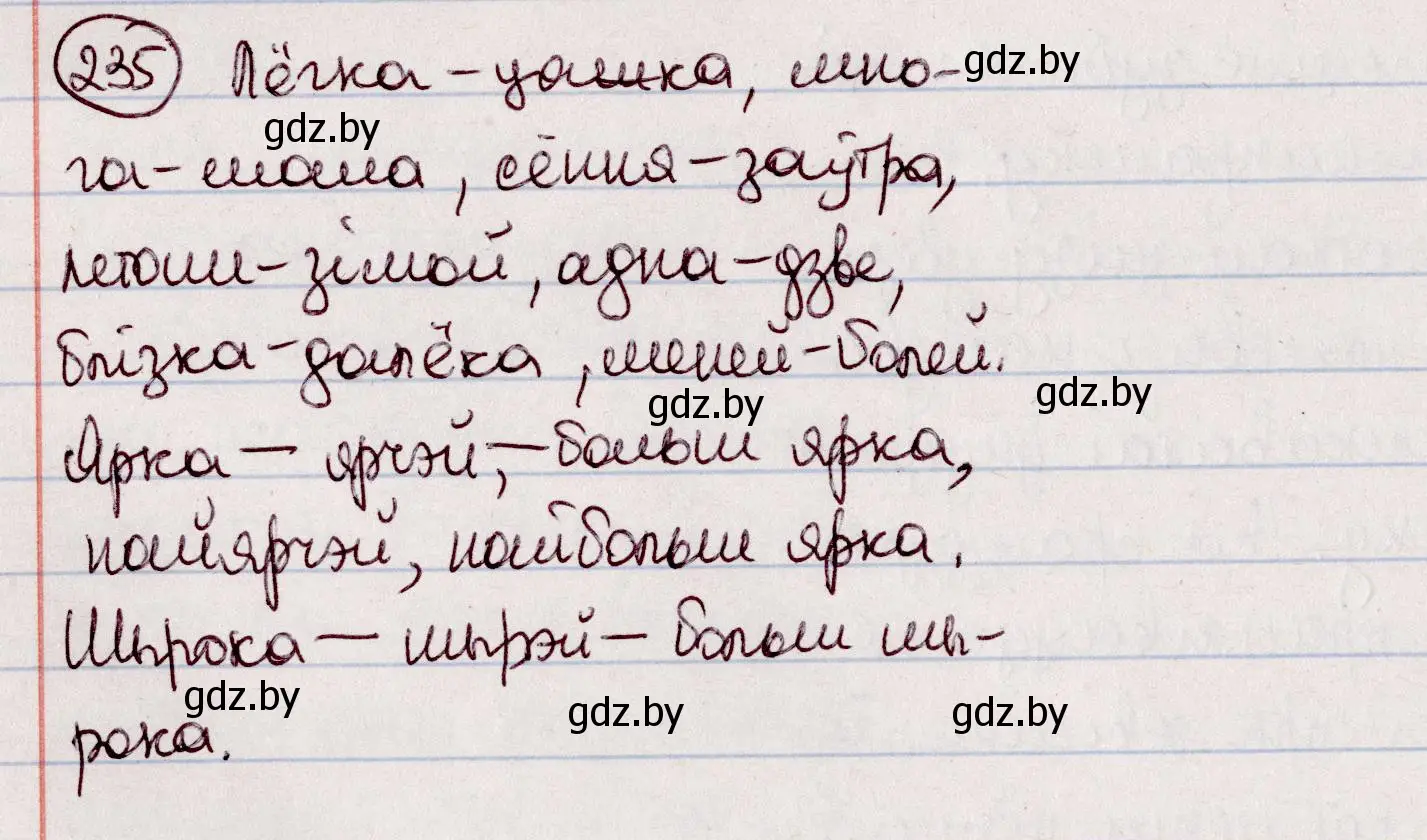 235 Лёгка – цяжка, мно-
gdz.by
gdz.by
га – мала, сёння – заўтра,
летам – зімой, адна – дзве,
блізка – далёка, меней – болей.
gdz.by
gdz.by
Ярка — ярчэй, – больш ярка,
найярчэй, найбольш ярка.
Шырока — шырэй – больш шы-
gdz.by
gdz.by
gdz.by
рока.